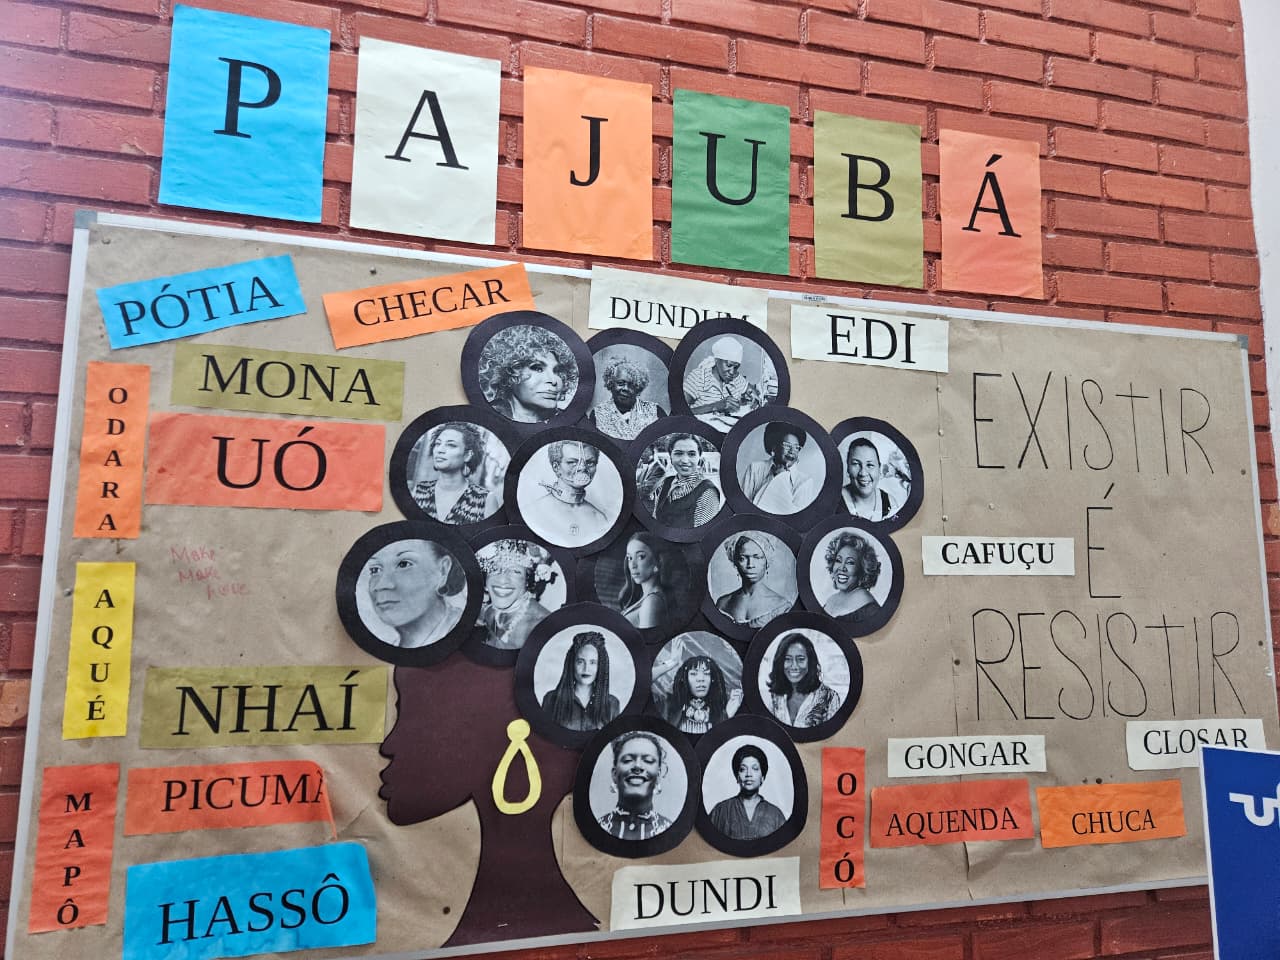 PAJUBÁ
PÓTIA
CHECAR
DUNDUM
EDI
MONA
ODARA
UÓ
EXISTIR
É
RESISTIR
CAFUÇU
Make
Make
AQUÉ
NHAÍ
GONGAR
CLOSAR
MAPÔ
PICUMÃ
OCÓ
AQUENDA
CHUCA
HASSÔ
DUNDI